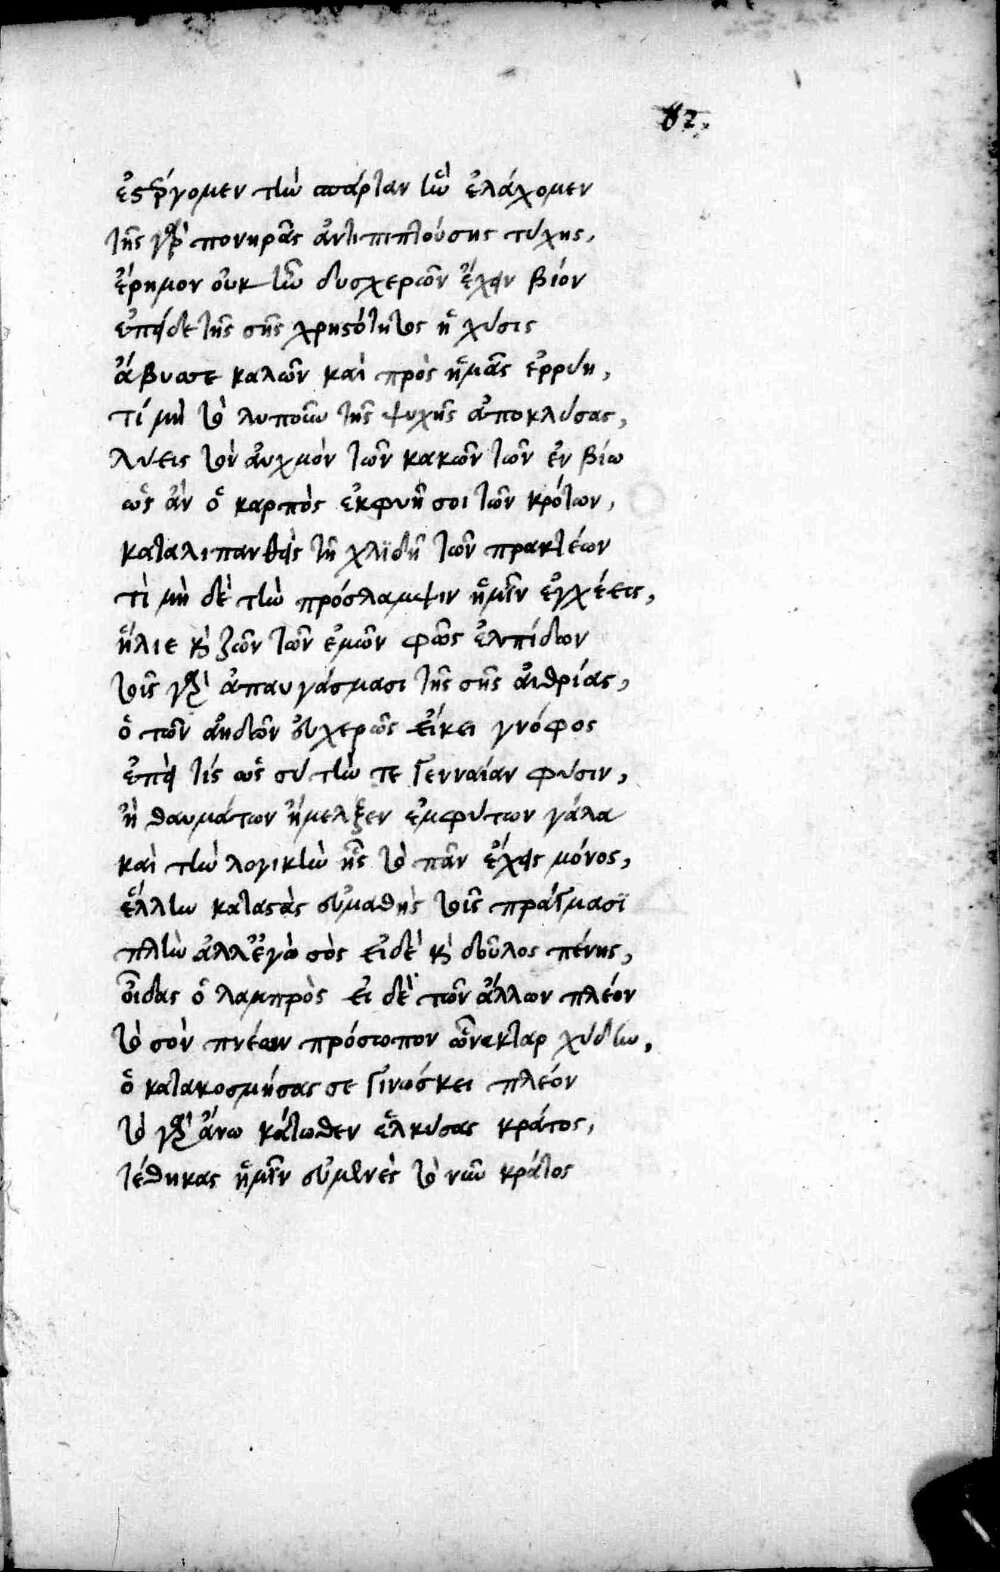 82.
ἐστέργομεν τὴν σπάρταν ἣν ἐλάχομεν
τῆς γὰρ πονηρᾶς ἀντιπιπτούσης τύχης,
ἔρημον οὐκ ἦν δυσχερῶν ἔχειν βίον
ἐπεὶ δὲ τῆς σῆς χρηστότητος ἡ χύσις
ἄβυσσε καλῶν καὶ πρὸς ἡμᾶς ἐρρύη,
τί μὴ τὸ λυποῦν τῆς ψυχῆς ἀποκλύσας,
λύεις τὸν αὐχμὸν τῶν κακῶν τῶν ἐν βίω
ὡς ἂν ὁ καρπὸς ἐκφυῆ σοι τῶν κρότων,
καταλιπανθεὶς τῆ χλιδῆ τῶν πρακτέων
τὶ μὴ δὲ τὴν πρόσλαμψιν ἡμῖν ἐγχέεις,
ἥλιε καὶ ζῶν τῶν ἐμῶν φῶς ἐλπίδων
τοῖς γὰρ ἀπαυγάσμασι τῆς σῆς αἰθρίας,
ὁ τῶν ἀηδῶν εὐχερῶς εἴκει γνόφος
ἐπεὶ τίς ὡς σὺ τήν τε γενναίαν φύσιν,
ἢ θαυμάτων ἤμελξεν ἐμφύτων γάλα
καὶ τὴν λογικὴν ἧς τὸ πᾶν ἔχεις μόνος,
ἕλλην καταστὰς εὐμαθὴς τοῖς πράγμασϊ
πλὴν ἀλλ' ἐγὼ σὸς εἰδὲ καὶ δοῦλος πένης,
οἶδας ὁ λαμπρὸς εἰ δὲ τῶν ἄλλων πλέον
τὸ σὸν πνέων πρόσωπον ὡς νέκταρ χύδην,
ὁ κατακοσμήσας σε γινώσκει πλέον
τὸ γὰρ ἄνω κάτωθεν ἑλκύσας κράτος,
τέθηκας ἡμῖν εὐμενὲς τὸ νῦν κράτος